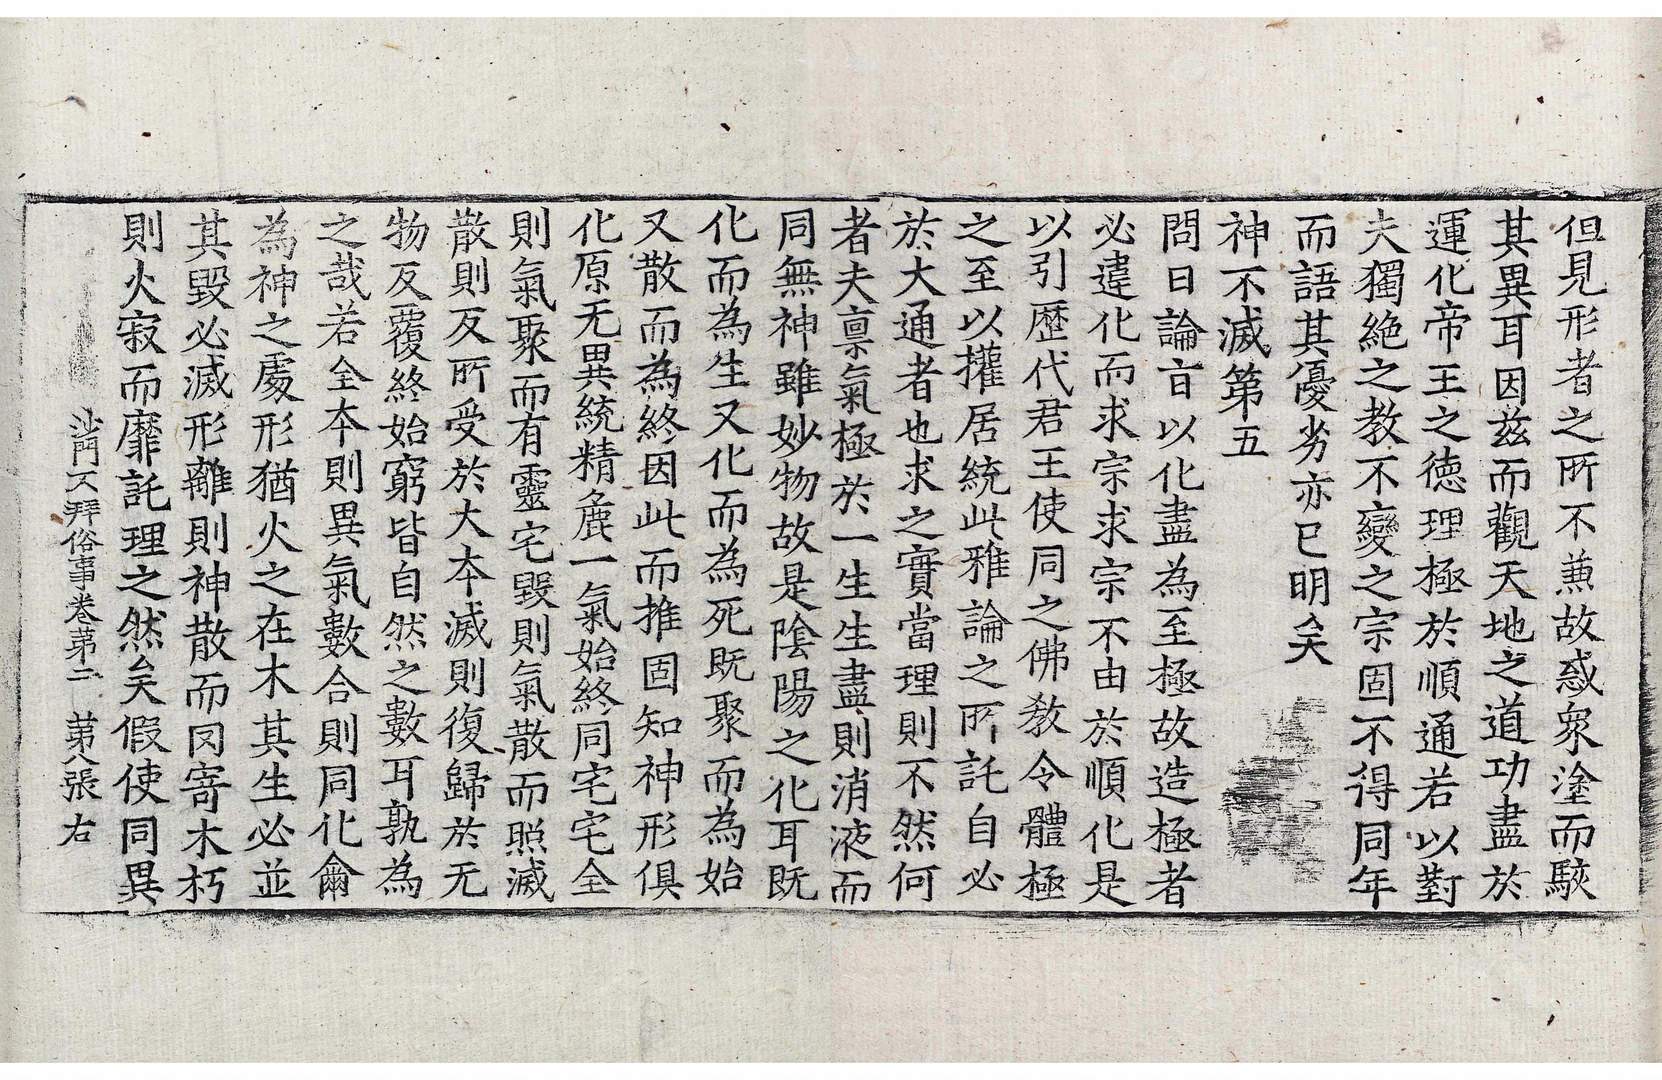 但見形者之所不兼故惑衆塗而駭
其異耳因茲而觀天地之道功盡於
運化帝王之德理極於順通若以對
夫獨絶之教不變之宗固不得同年
而語其優劣亦已明矣
神不滅第五
問曰論旨以化盡為至極故造極者
必違化而求宗求宗不由於順化是
以引歷代君王使同之佛教令體極
之至以權居統此雅論之所託自必
於大通者也求之實當理則不然何
者夫禀氣極於一生生盡則消液而
同無神雖妙物故是陰陽之化耳既
化而為生又化而為死既聚而為始
又散而為終因此而推固知神形俱
化原无異統精麁一氣始終同宅宅全
則氣聚而有靈宅毀則氣散而照滅
散則反所受於大本滅則復歸於无
物反覆終始窮皆自然之數耳孰為
之哉若全本則異氣數合則同化亦
為神之處形猶火之在木其生必並
其毀必滅形離則神散而罔寄木朽
則火寂而靡託理之然矣假使同異
沙門不拜俗事卷第二 第八張 右